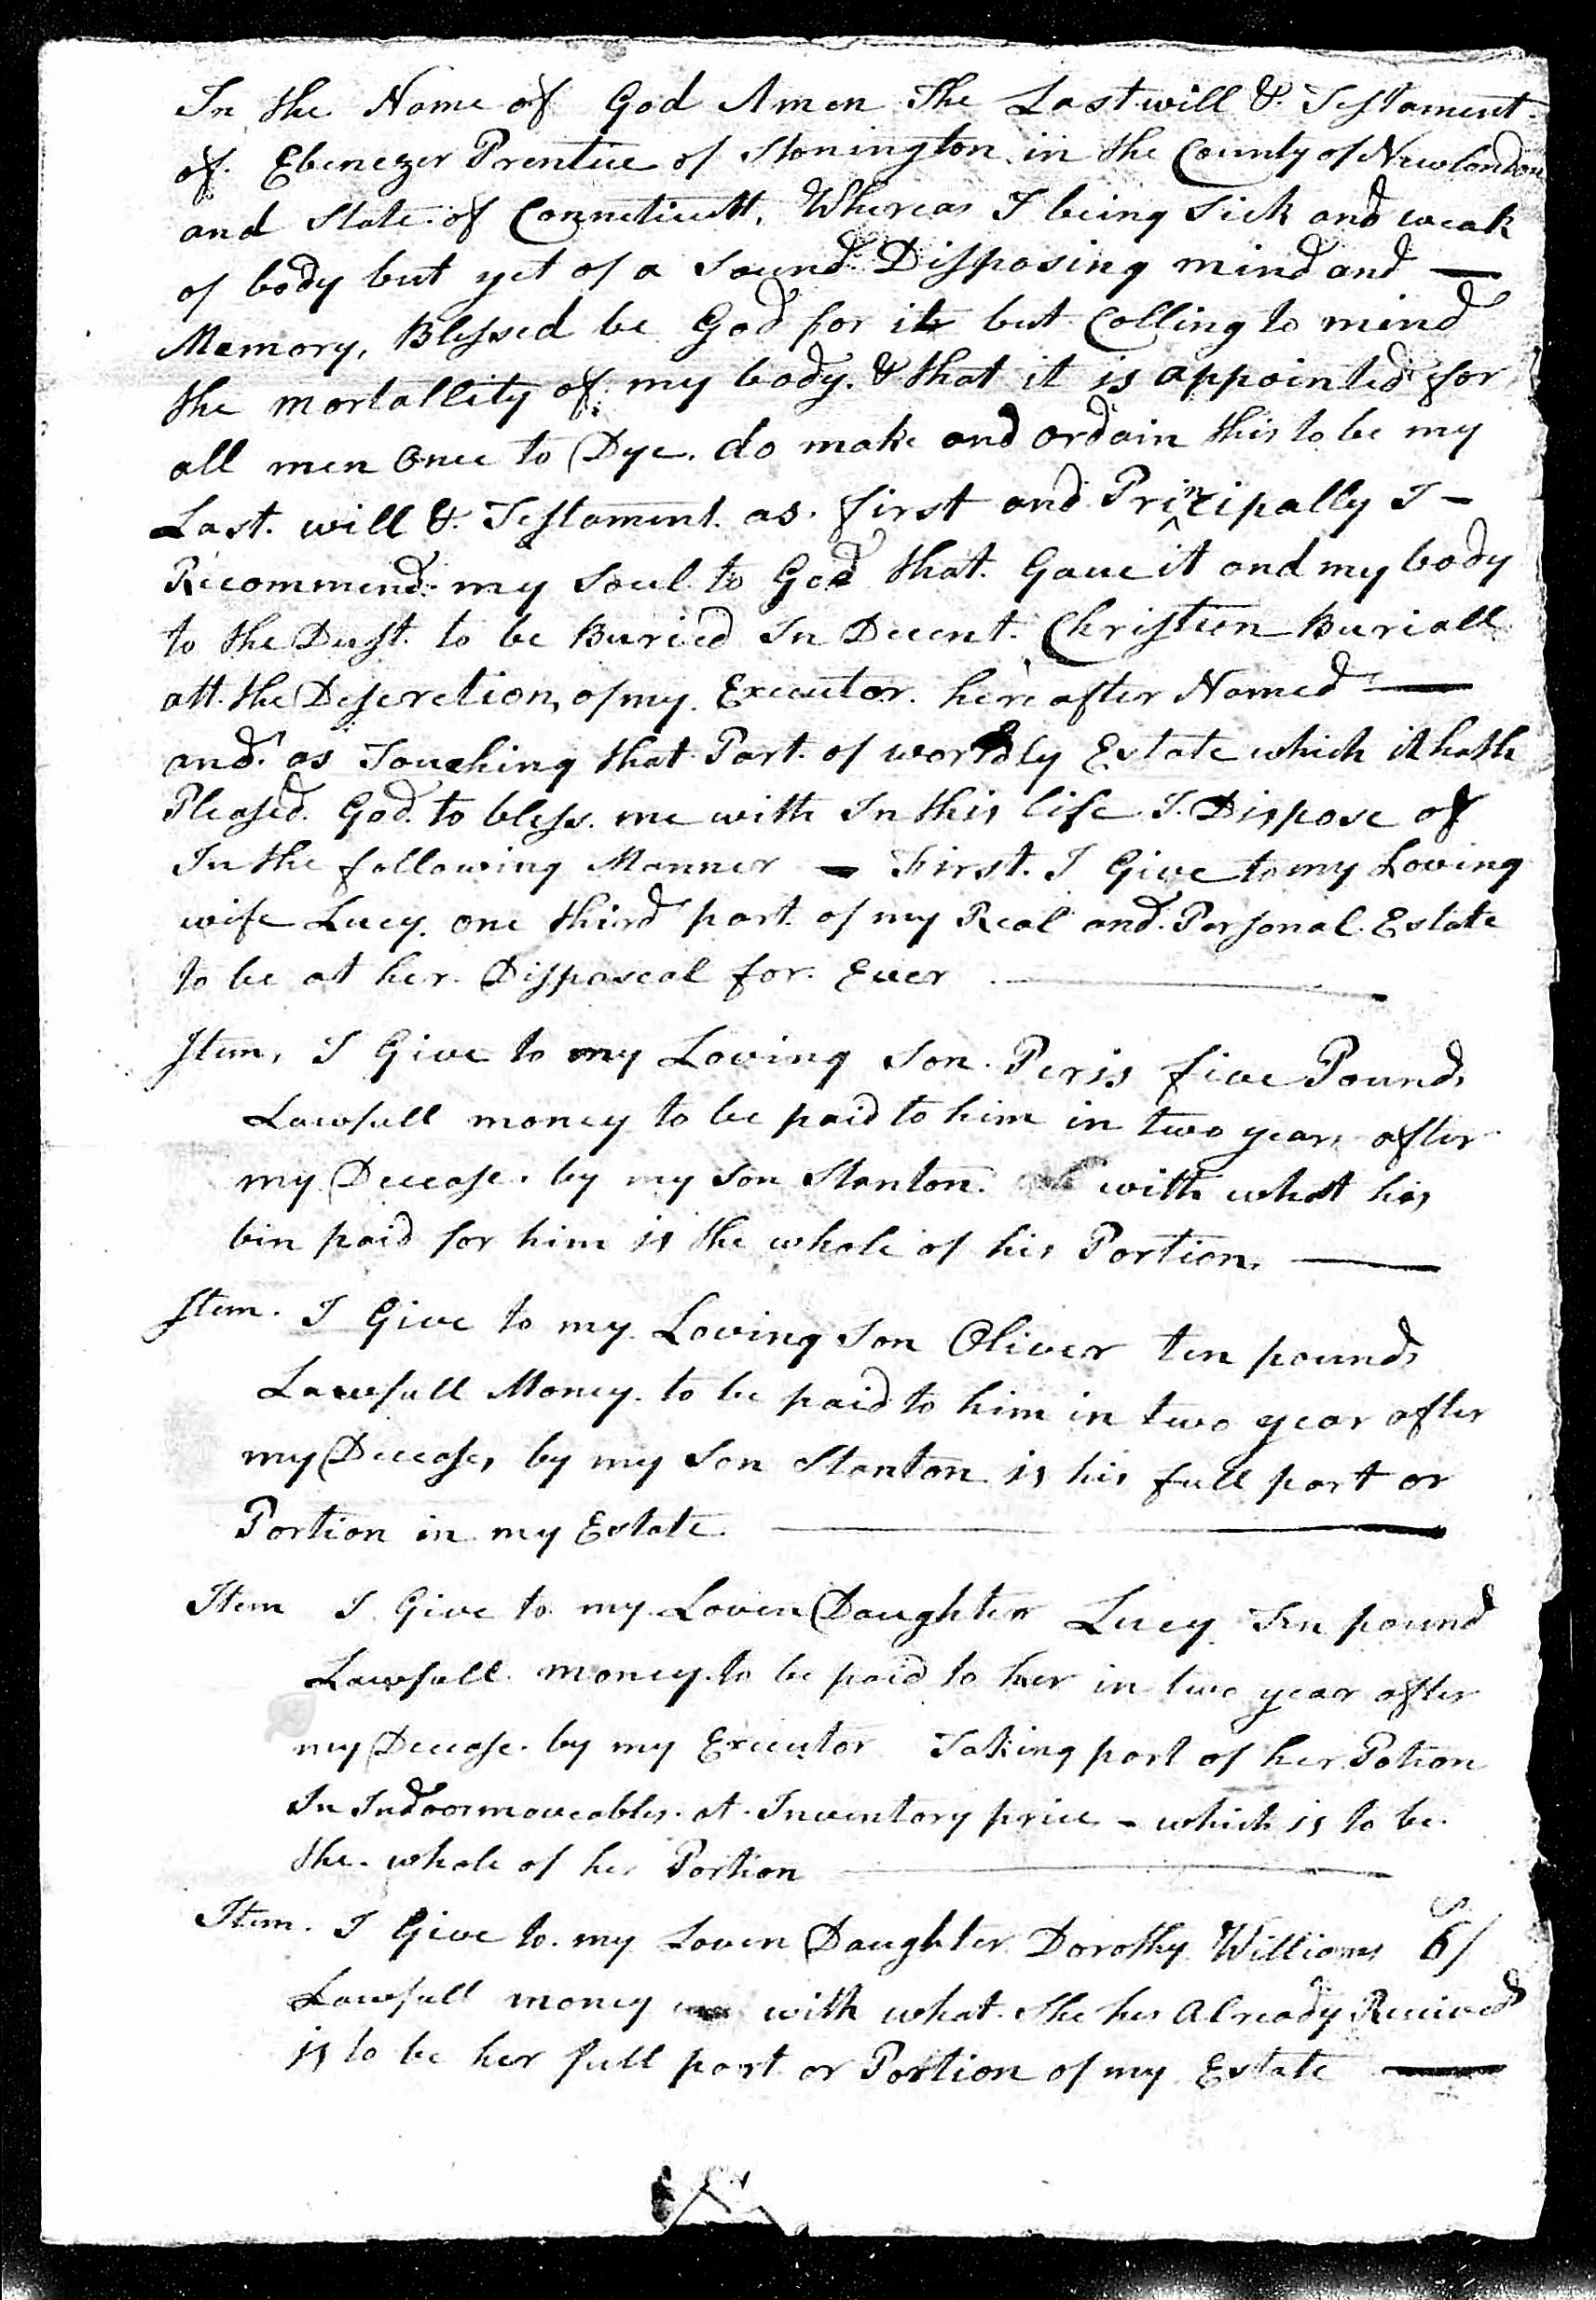 In the Name of God Amen The Last will & Testament
of Ebenezer Prentice of Stonington in the County of Newlondon
and State of Connecticutt, Whereas I being Sick and weak
of body but yet of a Sound Disposing mind and —
Memory, Blessed be God for it but Colling to mind
the mortallity of my body. & that it is appointed for
all men Once to Dye. do make and ordain this to be my
Last. will & Testament. as. first and Principally I –
Recommend my Soul to God that Gave it and my body
to the Dust to be Buried In Decent Christien Buriall
att the Descretion, of my Executor hereafter Named —
and as Touching that Part of worldly Estate which it hath
Pleased God to bless me with In this life I Dispose of
In the following Manner – First. I Give to my Loving
wife Lucy one third part of my Real and Personal Estate
to be at her Disposeal for Ever —
Item, I Give to my Loving Son Peris five Pounds
Lawfull money to be paid to him in two years after
my Decease by my Son Stanton with what has
bin paid for him is the whole of his Portion. —
Item. I Give to my Loving Son Oliver ten pounds
Lawfull Money to be paid to him in two year after
my Decease, by my Son Stanton is his full part or
Portion in my Estate. —
Item I Give to my Loven Daughter Lucy Ten pound
Lawfull money to be paid to her in two year after
my Decease by my Executor Taking part of her Potion
In Indoormoveables at Inventory price – which is to be
the whole of her Portion —
Item. I Give to my Loven Daughter Dorothy Williams 6/
Lawfull money with what She has Already Received
is to be her full part or Portion of my Estate —